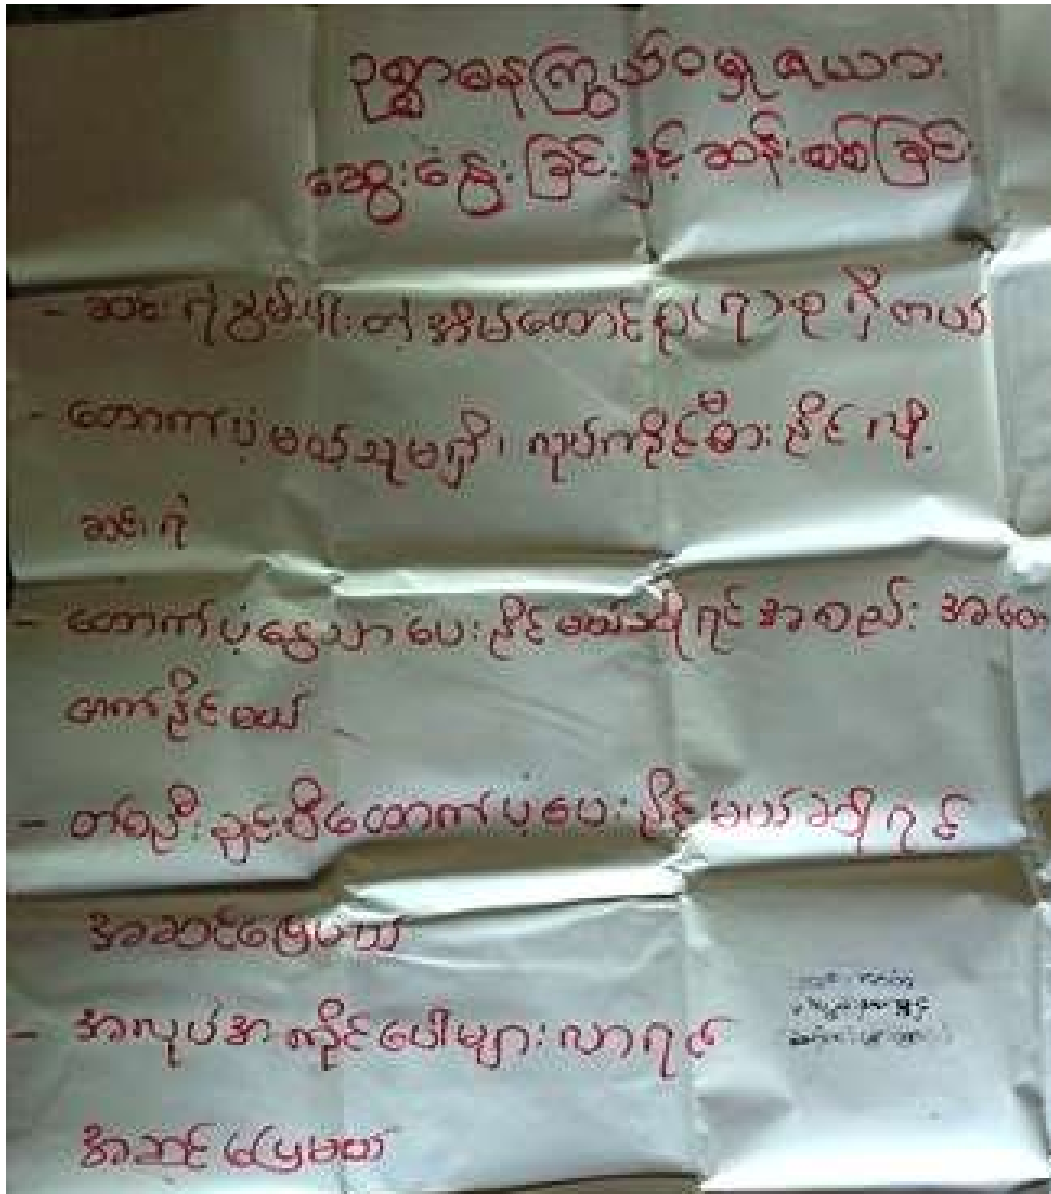 ဥစ္စာဓနကြွယ်ဝမှု ဇယား
ဆွေးနွေးခြင်းနှင့် ဆန်းစစ်ခြင်း
- ဆင်းရဲနွမ်းပါးတဲ့ အိမ်ထောင်စု(၇)စု ရှိတယ်
- ထောက်ပံ့မယ့်သူမရှိ၊ လုပ်ကိုင်မစားနိုင်လို့
ဆင်းရဲ
- ထောက်ပံ့ငွေသာပေးနိုင်မယ်ဆိုရင် အစည်းအဝေး
တက်နိုင်မယ်
- တစ်ဦးချင်းစီထောက်ပံ့ပေးနိုင်မယ်ဆိုရင်
အဆင်ပြေမယ်
- အလုပ်အကိုင်ပေါများလာရင်
အဆင်ပြေမယ်